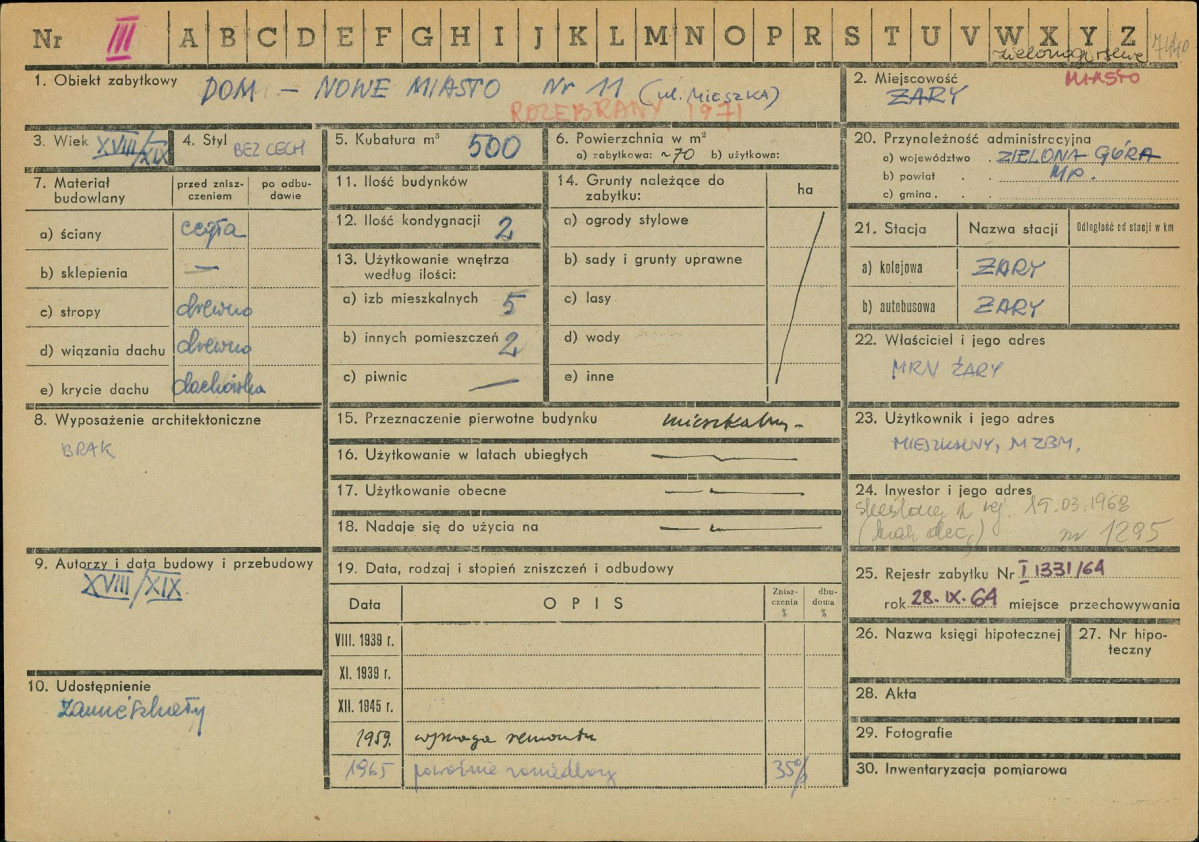 Nr III A B C D E F G H I J K L M N O P R S T U V W X Y Z
1. Obiekt zabytkowy DOM – NOWE MIASTO Nr 11 (ul. MIESZKA)
ROZEBRANY 1971
2. Miejscowość MIASTO
ŻARY
3. Wiek XVIII/XIX
4. Styl BEZ CECH
5. Kubatura m³ 500
6. Powierzchnia w m²
a) zabytkowa: ~70 b) użytkowa:
20. Przynależność administracyjna
a) województwo . ZIELONA GÓRA
b) powiat . . MP.
c) gmina . . .
7. Materiał budowlany
przed znisz-
czeniem
po odbu-
dowie
a) ściany cegła
b) sklepienia —
c) stropy drewno
d) wiązania dachu drewno
e) krycie dachu dachówka
11. Ilość budynków
12. Ilość kondygnacji 2
13. Użytkowanie wnętrza
według ilości:
a) izb mieszkalnych 5
b) innych pomieszczeń 2
c) piwnic —
14. Grunty należące do
zabytku:
ha
a) ogrody stylowe
b) sady i grunty uprawne
c) lasy
d) wody
e) inne
21. Stacja Nazwa stacji Odległość od stacji w km
a) kolejowa ŻARY
b) autobusowa ŻARY
22. Właściciel i jego adres
MRN ŻARY
8. Wyposażenie architektoniczne
BRAK
15. Przeznaczenie pierwotne budynku mieszkalny
16. Użytkowanie w latach ubiegłych —
17. Użytkowanie obecne — —
18. Nadaje się do użycia na — —
23. Użytkownik i jego adres
MIESZKALNY, MZBM.
24. Inwestor i jego adres
19.03.1968
nr 1295
9. Autorzy i data budowy i przebudowy
XVIII/XIX
10. Udostępnienie
zamieszkały
19. Data, rodzaj i stopień zniszczeń i odbudowy
Data OPIS Znisz-
czenia
%
dbu-
dowa
%
VIII. 1939 r.
XI. 1939 r.
XII. 1945 r.
1959. wymaga remontu
1965 poważnie zaniedbany 35%
25. Rejestr zabytku Nr I 1331/64
rok 28.IX.64 miejsce przechowywania
26. Nazwa księgi hipotecznej
27. Nr hipo-
teczny
28. Akta
29. Fotografie
30. Inwentaryzacja pomiarowa